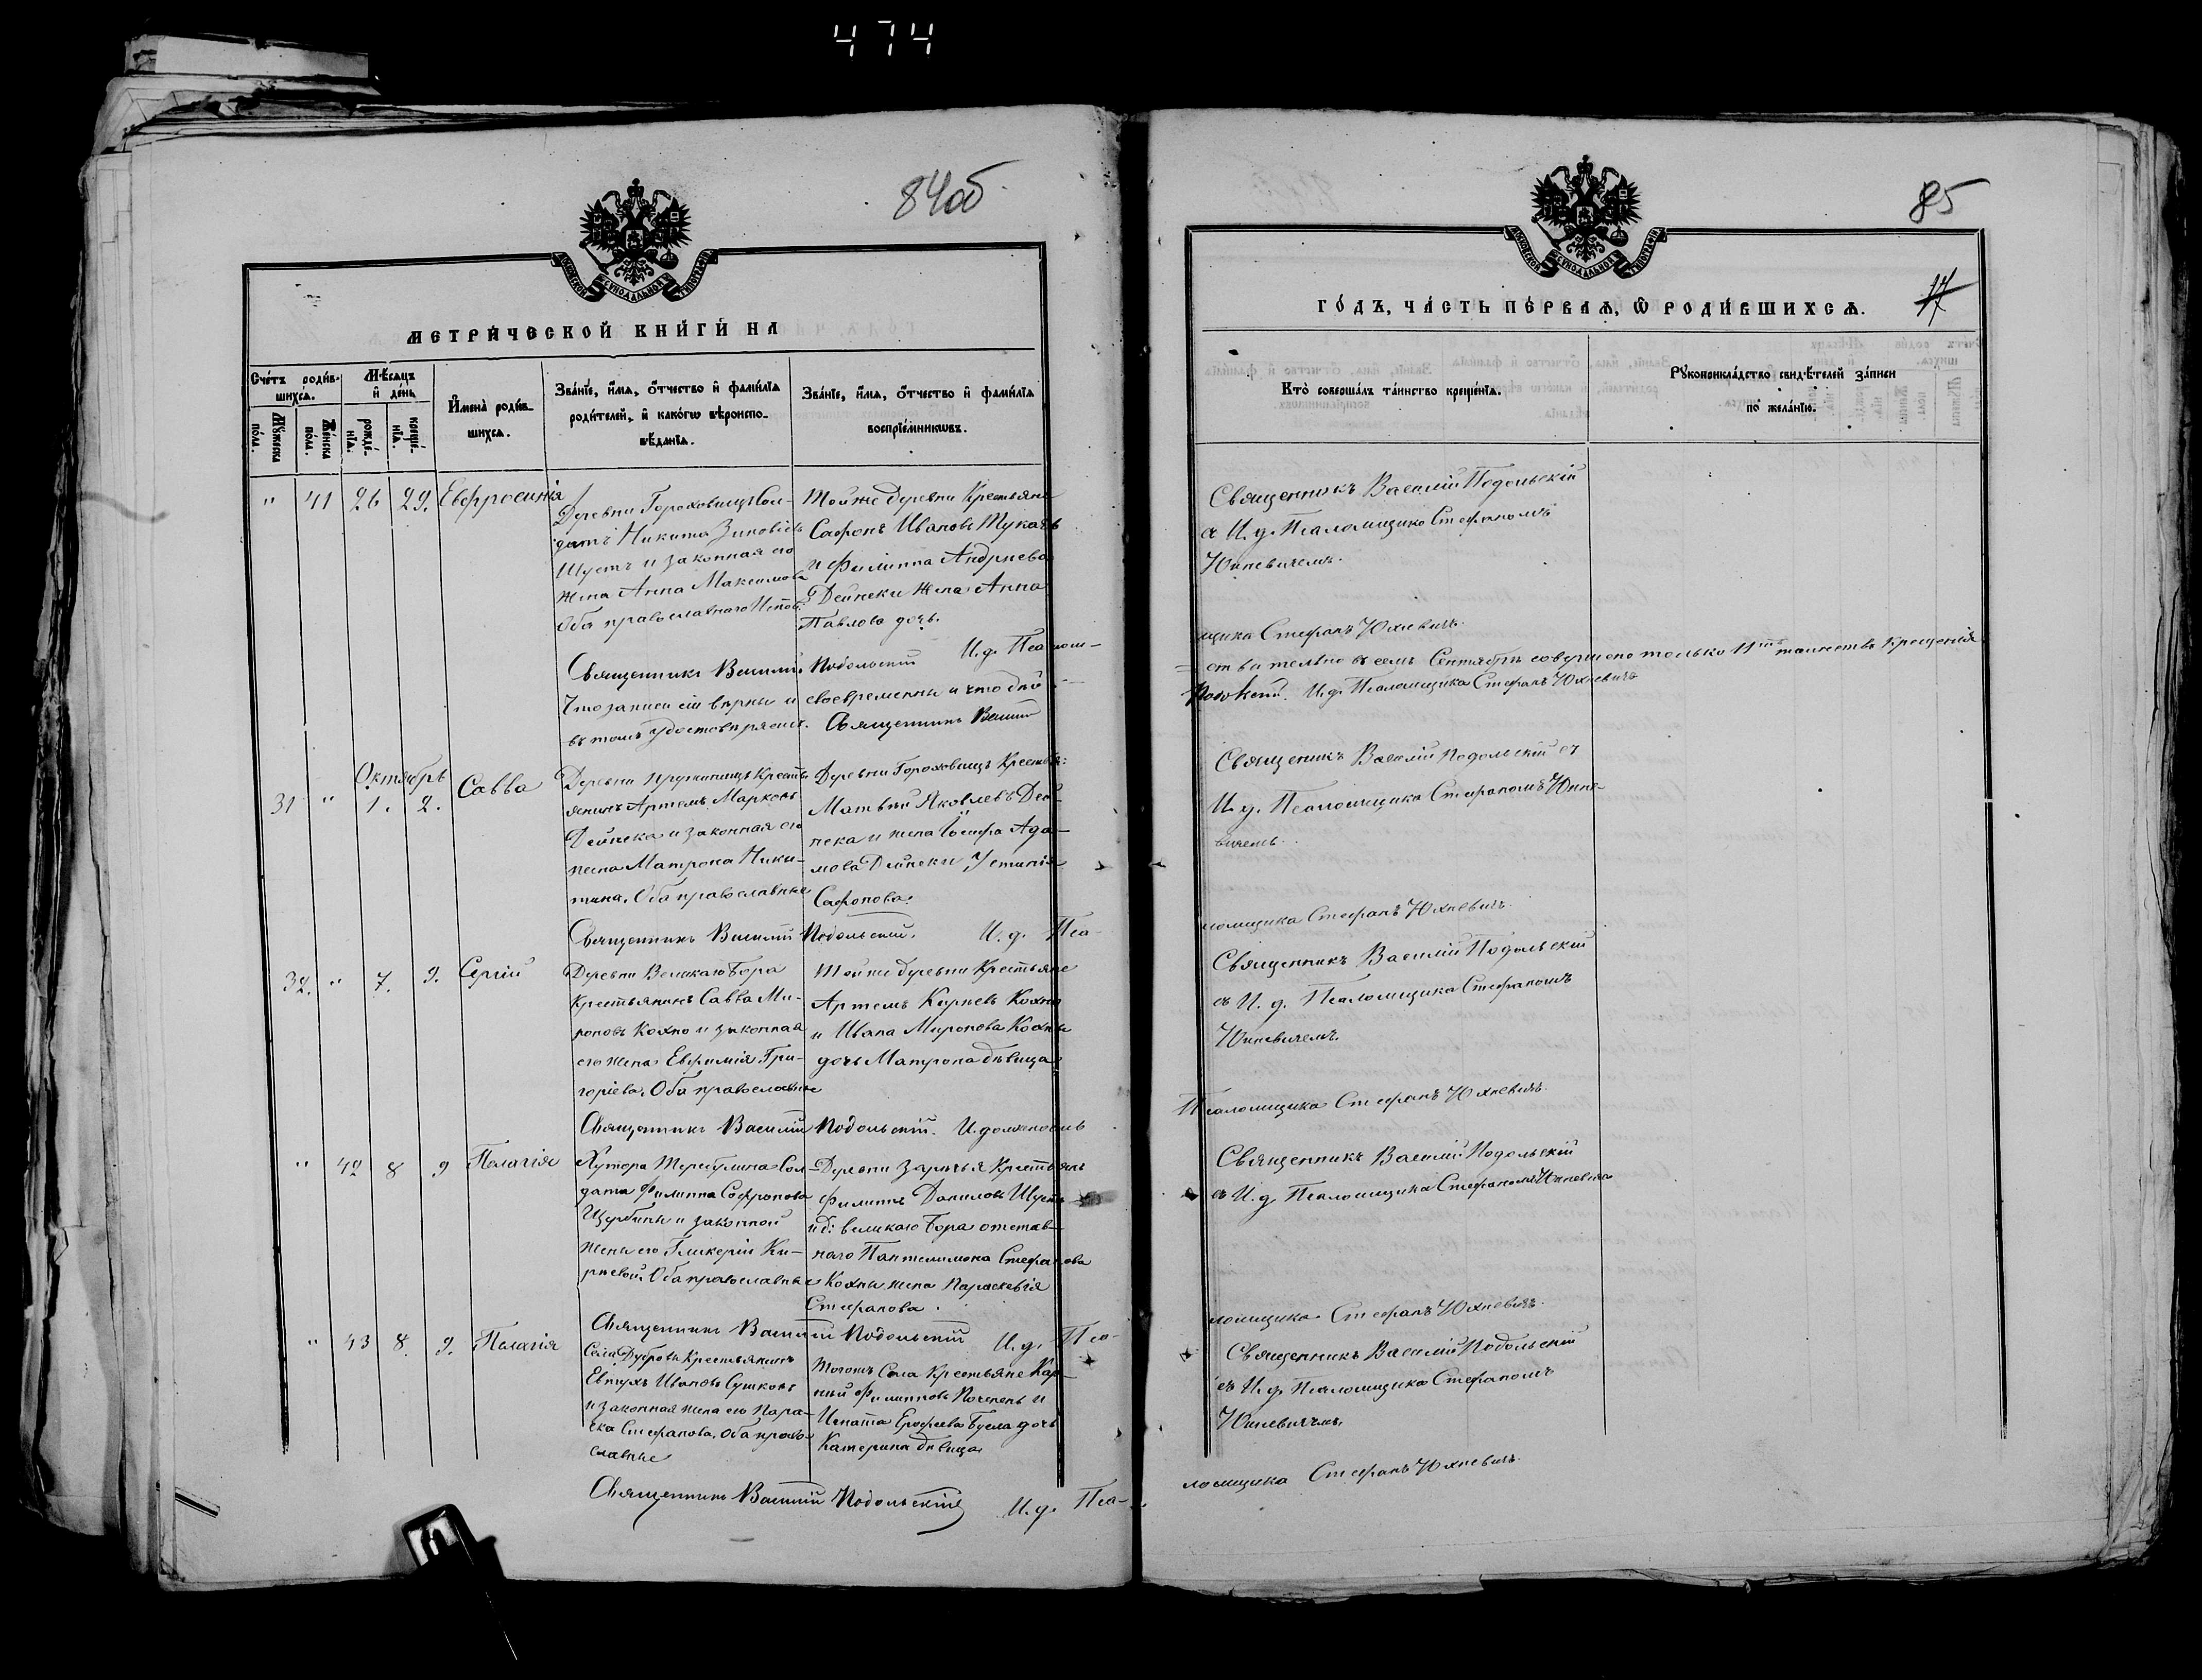 474
84об
МОСКОВСКОЙ СѴНОДАЛЬНОЙ ТИПОГРАФІИ
МЕТРИ́ЧЕСКОЙ КНИ́ГИ НА
Сче́тъ роди́в-
шихсѧ.
Мѣ́сѧцъ
и҆ де́нь
Мꙋ́жеска по́ла.
Же́нска по́ла.
рожде́-
нїѧ.
креще́-
нїѧ.
И҆мена̀ роди́в-
шихсѧ.
Зва́нїе, и҆́мѧ, ѻ҆́тчество и҆ фами́лїѧ
роди́телей, и҆ како́гѡ вѣроиспо-
вѣ́данїѧ.
Зва́нїе, и҆́мѧ, ѻ҆́тчество и҆ фами́лїѧ
воспрїе́мникѡвъ.
" 41 26 29. Евфросинія
Деревни Гороховищъ Сол-
датъ Никита Зиновіевъ
Шустъ и законная его
жена Анна Максимова
Оба православнаго Испов.
Тойже деревни Крестьяне
Сафонъ Ивановъ Тукачъ
и Филиппа Андреева
Дейнеки жена Анна
Павлова дочь.
Священникъ Василій Подольскій И. д. Псалом-
Что записи сіи вѣрны и своевременны и что дѣй-
въ томъ удостовѣряемъ. Священникъ Василій
Октябрь
31 " 1. 2. Савва
Деревни Пружинищъ Кресть-
янинъ Артемъ Марковъ
Дейнека и законная его
жена Матрона Ники-
тина. Оба православные
Деревни Гороховищъ Крестьян:
Матвѣй Яковлевъ Дей-
нека и жена Іосифа Ада-
мова Дейнеки Устинія
Сафонова.
Священникъ Василій Подольскій. И. д. Пса-
32. " 7. 9. Сергій
Деревни Великаго Бора
Крестьянинъ Савва Ми-
роновъ Кохно и законная
его жена Евфимія Гри-
горіева. Оба православные
Тойже деревни Крестьяне
Артемъ Карневъ Кохно
и Ивана Миронова Кохны
дочь Матрона дѣвица
Священникъ Василій Подольскій. И должность
" 42 8 9 Пелагія
Хутора Теребулина Сол-
дата Филиппа Софронова
Щербины и законной
жены его Гликеріи Ки-
рѣевой. Оба православные
Деревни Зарѣчья Крестьянъ
Филиппъ Даниловъ Шустъ
и д: Великаго Бора отстав-
наго Пантелимона Стефанова
Кохны жена Параскевія
Стефанова.
Священникъ Василій Подольскій И. д. Пса-
" 43 8. 9. Пелагія
Села Дубровы Крестьянинъ
Евтухъ Ивановъ Сушковъ
и законная жена его Пара-
ска Стефанова. Оба право-
славные
Тогожъ Села Крестьяне Кор-
ный Филипповъ Почепень и
Игната Ерофеева Бусла дочь
Катерина дѣвица
Священникъ Василій Подольскій И. д. Пса-
85
17
МОСКОВСКОЙ СѴНОДАЛЬНОЙ ТИПОГРАФІИ
ГО́ДЪ, ЧА́СТЬ ПЕ́РВАѦ, Ѽ РОДИ́ВШИХСѦ.
Кто̀ соверша́лъ та́инство креще́нїѧ.
Рꙋкоприкла́дство свидѣ́телей за́писи
по жела́нїю.
Священникъ Василій Подольскій
съ И. д. Псаломщика Стефаномъ
Юхневичемъ.
щика Стефанъ Юхневичъ.
ствительно въ семъ Сентябрѣ совершено только 11ть таинствъ Крещенія
Подольскій. И. д. Псаломщика Стефанъ Юхневичъ
Священикъ Василій Подольскій съ
И. д. Псаломщика Стефаномъ Юхне-
вичемъ.
ломщика Стефанъ Юхневичъ.
Священникъ Василій Подольскій
съ И. д. Псаломщика Стефаномъ
Юхневичемъ.
Псаломщика Стефанъ Юхневичъ.
Священникъ Василій Подольскій
съ И. д. Псаломщика Стефаномъ Юхневичемъ
ломщика Стефанъ Юхневичъ.
Священникъ Василій Подольскій
съ И. д. Псаломщика Стефаномъ
Юхневичемъ.
ломщика Стефанъ Юхневичъ.